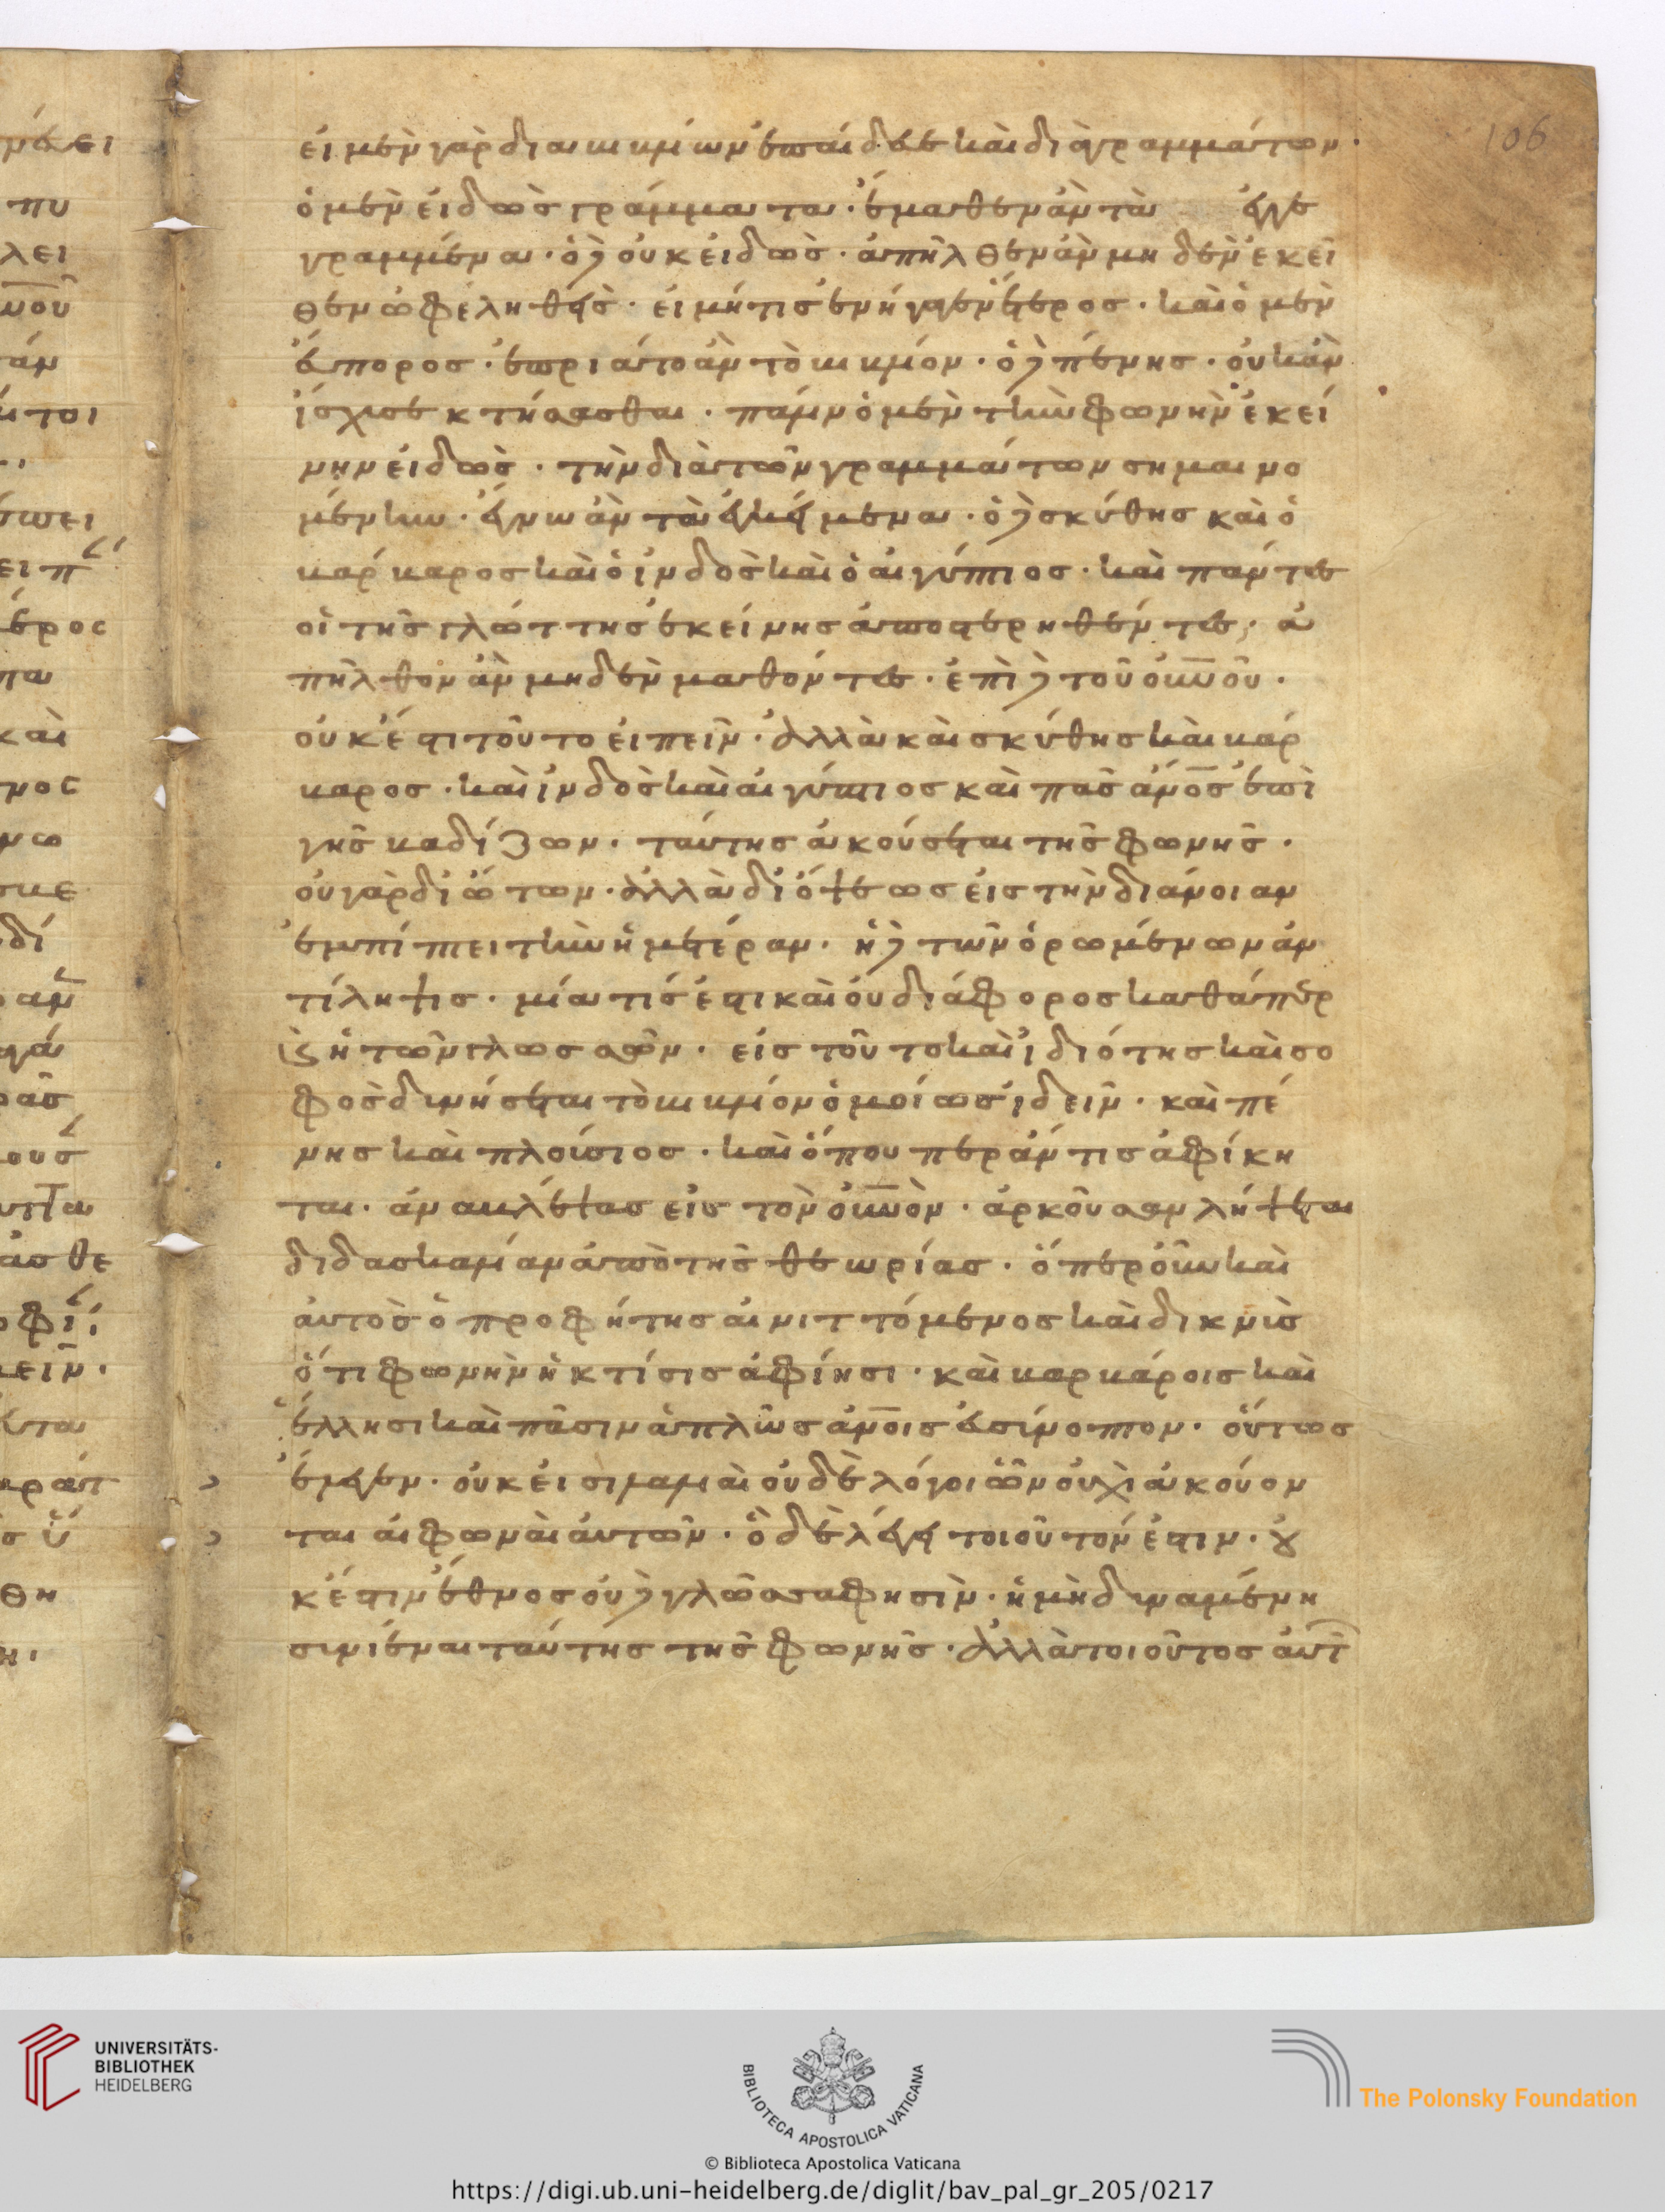 106
εἰ μὲν γὰρ διὰ βιβλίων ἐπαίδευε καὶ διὰ γραμμάτων·
ὁ μὲν εἰδὼς γράμματα· ἔμαθεν ἂν τὰ ἐγγε
γραμμένα· ὁ δὲ οὐκ εἰδὼς· ἀπῆλθεν ἂν μηδὲν ἐκεῖ
θεν ὠφεληθεὶς· εἰ μή τις ἐνήγαγεν ἕτερος· καὶ ὁ μὲν
εὔπορος· ἐπρίατο ἂν τὸ βιβλίον· ὁ δὲ πένης· οὐκ ἂν
ἴσχυσε κτήσασθαι· πάλιν ὁ μὲν τὴν φωνὴν ἐκεί
νην εἰδὼς· τὴν διὰ τῶν γραμμάτων σημαινο
μένην· ἔγνω ἂν τὰ ἐγκείμενα· ὁ δὲ σκύθης καὶ ὁ
βάρβαρος καὶ ὁ ἰνδὸς καὶ ὁ αἰγύπτιος· καὶ πάντες
οἱ τῆς γλώττης ἐκείνης ἀπεστερηθέντες· ἀ
πῆλθον ἂν μηδὲν μαθόντες· ἐπὶ δὲ τοῦ οὐνοῦ·
οὐκ ἔστι τοῦτο εἰπεῖν· ἀλλὰ καὶ σκύθης καὶ βάρ
βαρος· καὶ ἰνδὸς καὶ αἰγύπτιος καὶ πᾶς ἄνος ἐπὶ
γῆς βαδίζων· ταύτης ἀκούσεται τῆς φωνῆς·
οὐ γὰρ δι' ὤτων· ἀλλὰ δι' ὄψεως εἰς τὴν διάνοιαν
ἐμπίπτει τὴν ἡμετέραν· ἡ δὲ τῶν ὁρωμένων ἀν
τίληψις· μία τίς ἐστι καὶ οὐ διάφορος καθάπερ
ἡ τῶν γλωσσῶν· εἰς τοῦτο καὶ ἰδιότης καὶ σο
φὸς δυνήσεται τὸ βιβλίον ὁμοίως ἰδεῖν· καὶ πέ
νης καὶ πλούσιος· καὶ ὅπου περ ἄν τις ἀφίκη
ται· ἀναβλέψας εἰς τὸν οὐνὸν· ἀρκοῦσαν λήψεται
διδασκαλίαν ἀπὸ τῆς θεωρίας· ὅπερ οὖν καὶ
αὐτὸς ὁ προφήτης αἰνιττόμενος καὶ δεικνὺς
ὅτι φωνὴν ἡ κτίσις ἀφίησι· καὶ βαρβάροις καὶ
ἕλλησι καὶ πᾶσιν ἁπλῶς ἀνοις εὐσύνοπτον· οὕτως
ἔλεγεν· οὐκ εἰσὶ λαλιαὶ οὐδὲ λόγοι ὧν οὐχὶ ἀκούον
ται αἱ φωναὶ αὐτῶν· ὃ δὲ λέγει τοιοῦτόν ἐστιν· οὐ
κ ἔστιν ἔθνος οὐδὲ γλῶσσα φησὶν· ἡ μὴ δυναμένη
συνιέναι ταύτης τῆς φωνῆς· ἀλλὰ τοιοῦτος αὐτ
UNIVERSITÄTS-
BIBLIOTHEK
HEIDELBERG
BIBLIOTECA APOSTOLICA VATICANA
The Polonsky Foundation
© Biblioteca Apostolica Vaticana
https://digi.ub.uni-heidelberg.de/diglit/bav_pal_gr_205/0217